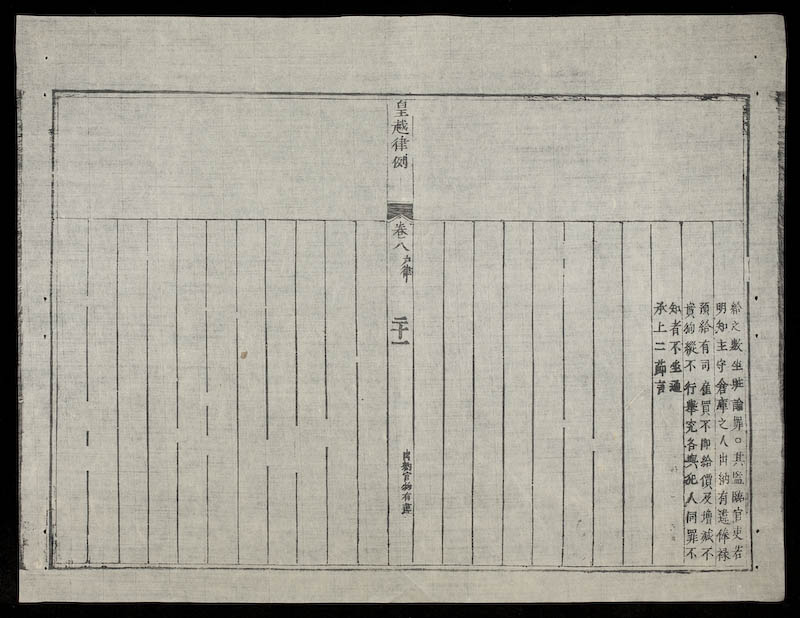 給之數坐贓論罪○其監臨官吏若
明知主守倉庫之人出納有違俸祿
預給有司雇買不即給價及增減不
實狥縱不行舉究各與犯人同罪不
知者不坐通
承上二節言
皇越律例
卷八 户律
二十一
出納官物有違